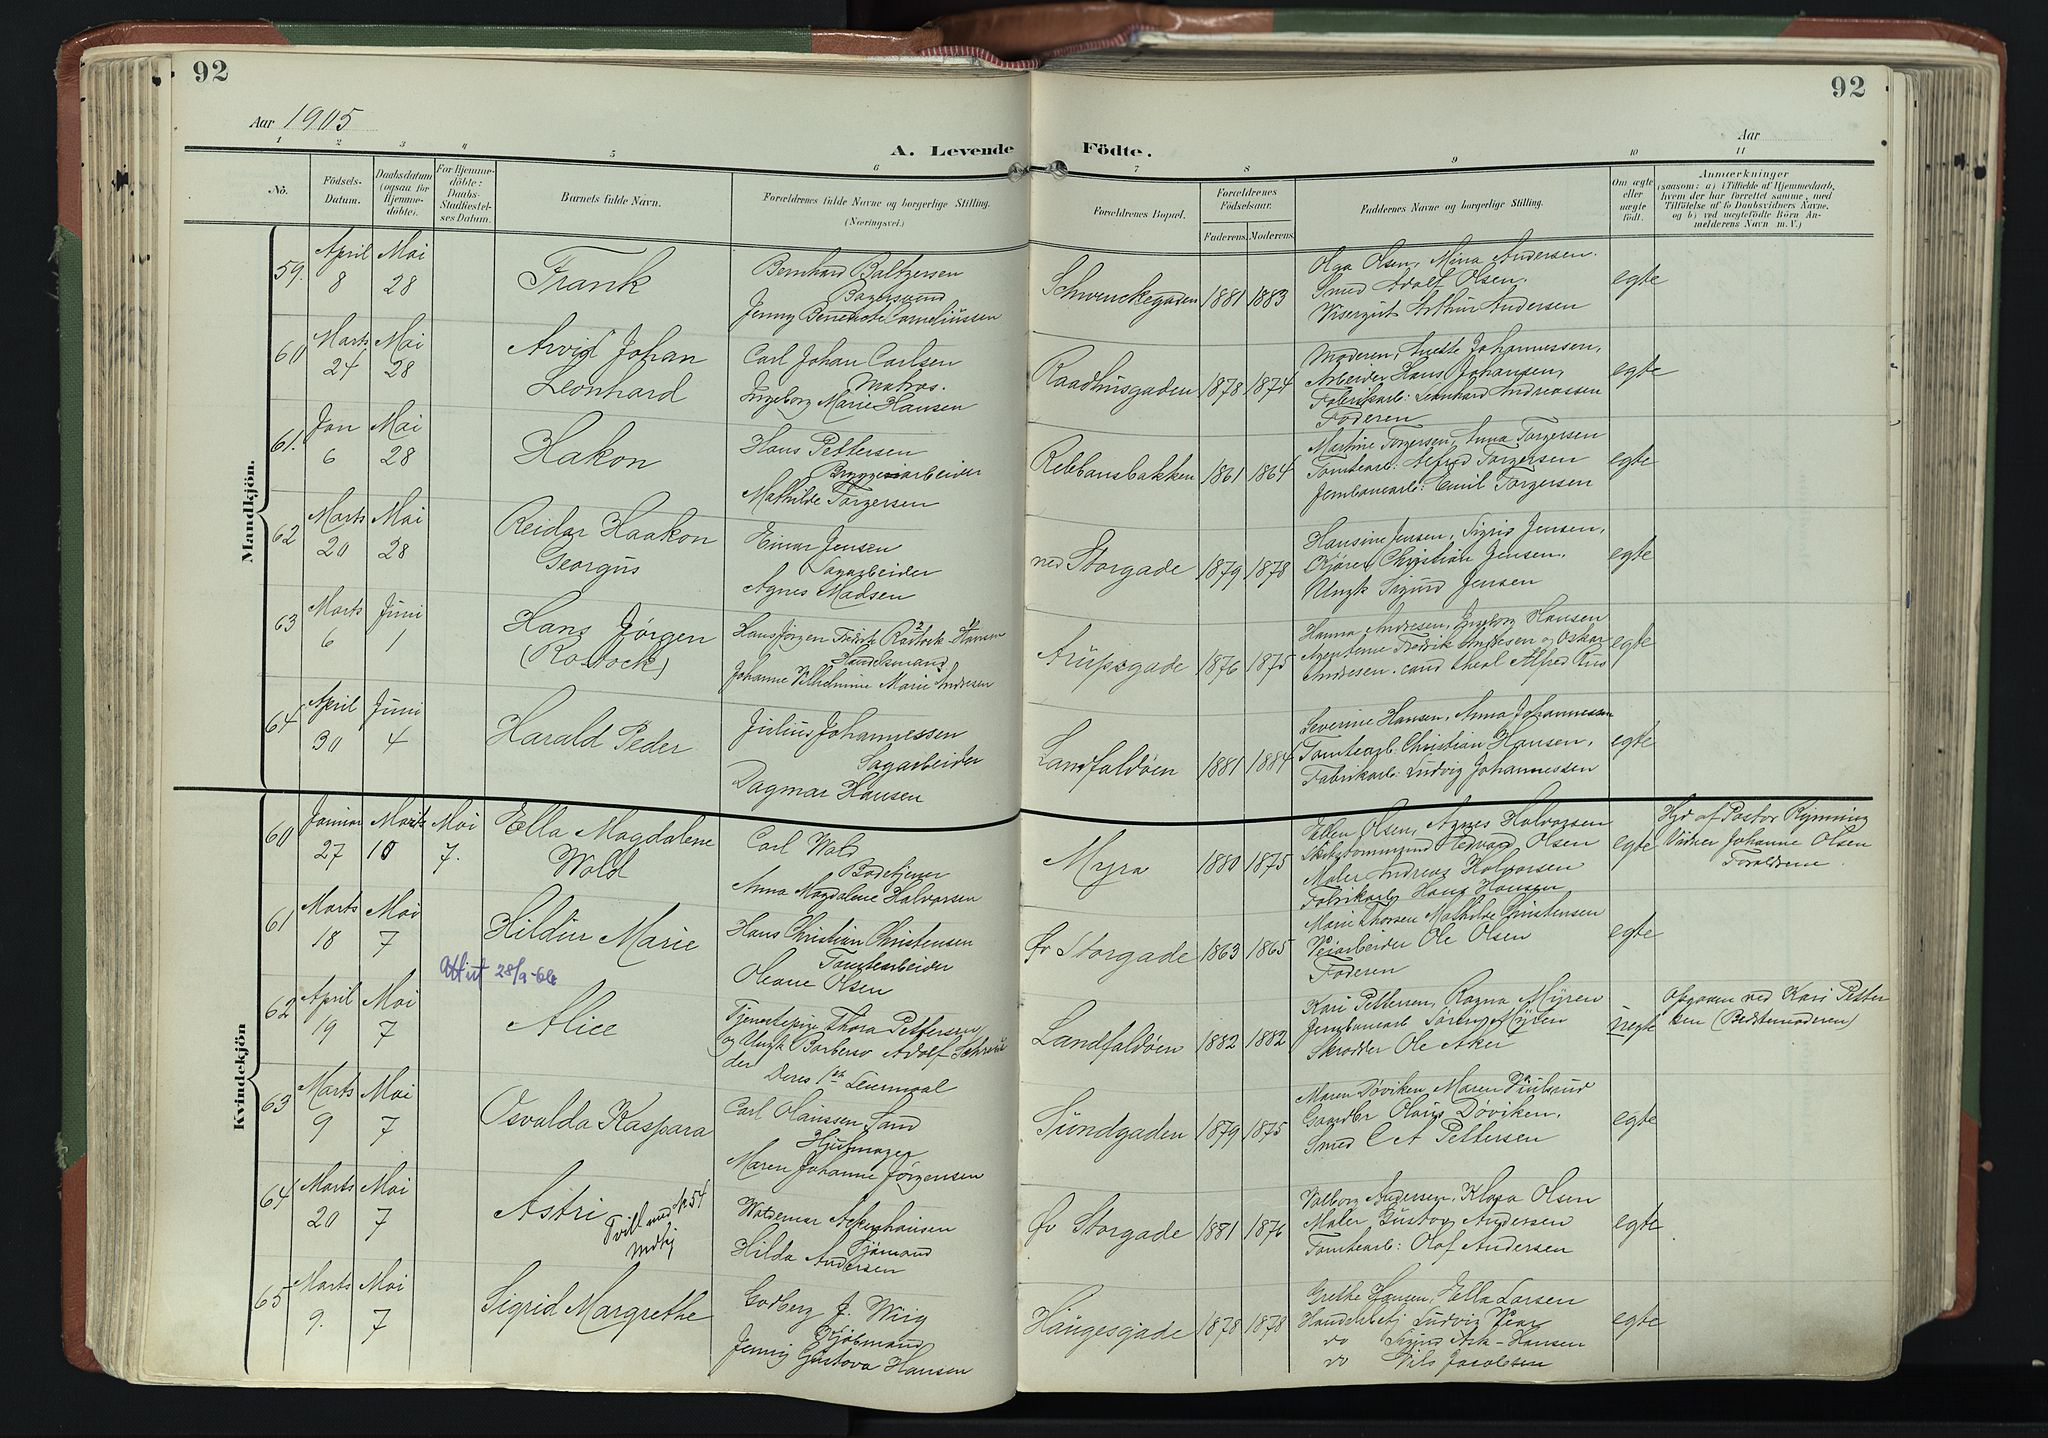 92
92
Aar 1905
Aar
A. Levende Födte.
1 2 3 4 5 6 7 8 9 10 11
No.
Födsels-Datum.
Daabsdatum (ogsaa for Hjemmedöbte).
For Hjemmedöbte: Daabs-Stadfæstelses Datum.
Barnets fulde Navn.
Forældrenes fulde Navne og borgerlige Stilling.
(Næringsvei.)
Forældrenes Bopæl.
Forældrenes Födselsaar.
Faderens. Moderens.
Faddernes Navne og borgerlige Stilling.
Om ægte eller uægte födt.
Anmærkninger
(saasom: a) i Tilfælde af Hjemmedaab,
hvem der har forrettet samme, med
Tilföielse af to Daabsvidners Navne,
og b) ved uægtefödte Börn An-
melderens Navn m. V.)
Mandkjön.
59. April 8 Mai 28
Frank
Bernhard Baltzersen
Bagersvend
Jenny Benedicte Corneliussen
Schwenckegaden 1881 1883
Olga Olsen, Mina Andersen.
Smed Adolf Olsen.
Visergut Arthur Andersen
egte
60 Marts 24 Mai 28
Arvid Johan
Leonhard
Carl Johan Carlsen
Matros.
Ingeborg Marie Hansen
Raadhusgaden 1878 1874
Moderen, Anette Johannessen,
Arbeider Hans Johansen,
Fabrikarb: Leonhard Andreassen
Faderen
egte
61. Jan 6 Mai 28
Hakon
Hans Pettersen
Bryggeriarbeider
Mathilde Torgersen
Rebbansbakken 1861 1864
Martine Torgersen, Anna Torgersen
Tomtearb: Alfred Torgersen
Jernbanearb: Emil Torgersen
egte
62 Marts 20 Mai 28
Reidar Haakon
Georgus
Einar Jensen
Sagarbeider
Agnes Madsen
ned Storgade 1879 1878
Hansine Jensen, Sigrid Jensen,
Kjører Christian Jensen.
Ungk Sigurd Jensen
egte
63 Marts 6 Juni 1
Hans Jørgen
(Rostock)
Hans Jörgen Fredrik Rostock Hansen
Handelsmand
Johanne Vilhelmine Marie Andresen
Arupsgade 1876 1875
Hanna Andresen, Ingeborg Hansen
Agenterne Fredrik Andresen og Oskar
Andresen. cand theol Alfred Riis
egte
64 April 30 Juni 4
Harald Peder
Julius Johannessen
Sagarbeider
Dagmar Hansen
Landfaldøen 1881 1884
Severine Hansen, Anna Johannessen
Tomtearb. Christian Hansen,
Fabrikarb: Ludvig Johannessen
egte
Kvindekjön
60 Januar 27 Marts 10 Mai 7.
Ella Magdalene
Wold
Carl Wold
Bødtjener
Anna Magdalene Halvorsen
Myra 1880 1875
Ellen Olsen, Agnes Halvorsen
Hedvard Olsen
Maler Andreas Halvorsen
Fabrikarb Hans Hansen
egte
Hjd af Pastor Rynning
Vidner Johanne Olsen
Forældrene.
61 Marts 18 Mai 7
Hildur Marie
Hans Christian Christensen
Tomtearbeider
Oleane Olsen
Øv Storgade 1863 1865
Marie Thorsen Mathilde Christensen
Veiarbeider Ole Olsen
Faderen
egte
Attest 28/9-66
62 April 19 Mai 7
Alice
Tjenestepige Thora Pettersen
og Ungk Barbersv Adolf Schrøder
Deres 1ste Leiermaal
Landfaldøen 1882 1882
Kari Pettersen, Ragna Myren
Jernbanearb Søren Myren
Skrædder Ole Aker
uegte
Opgaven ved Kari Petter
sen (Bedstemoderen)
63 Marts 9 Mai 7
Osvalda Kaspara
Carl Olaussen Sand
Hjulmager
Maren Johanne Jørgensen
Sundgaden 1879 1875
Maren Døviken, Maren
Gaardbr Olaus Døviken,
Smed C A Pettersen
egte
64 Marts 20 Mai 7
Astri
Tvill med No 54
Mdkj
Waldemar Ackerhausen
Sjömand
Hilda Andersen
Øv Storgade 1881 1876
Valborg Andersen, Klara Olsen
Maler Gustav Andersen
Tomtearb: Olaf Andersen
egte
65 Marts 9. Mai 7
Sigrid Margrethe
Godberg J. Wiig
Kjøbmand
Jenny Gustava Hansen
Haugesgade 1878 1878
Grethe Hansen, Ella Larsen
Handelsbetj Ludvig
do Sigurd Ask-Hansen
do Nils Jacobsen
egte